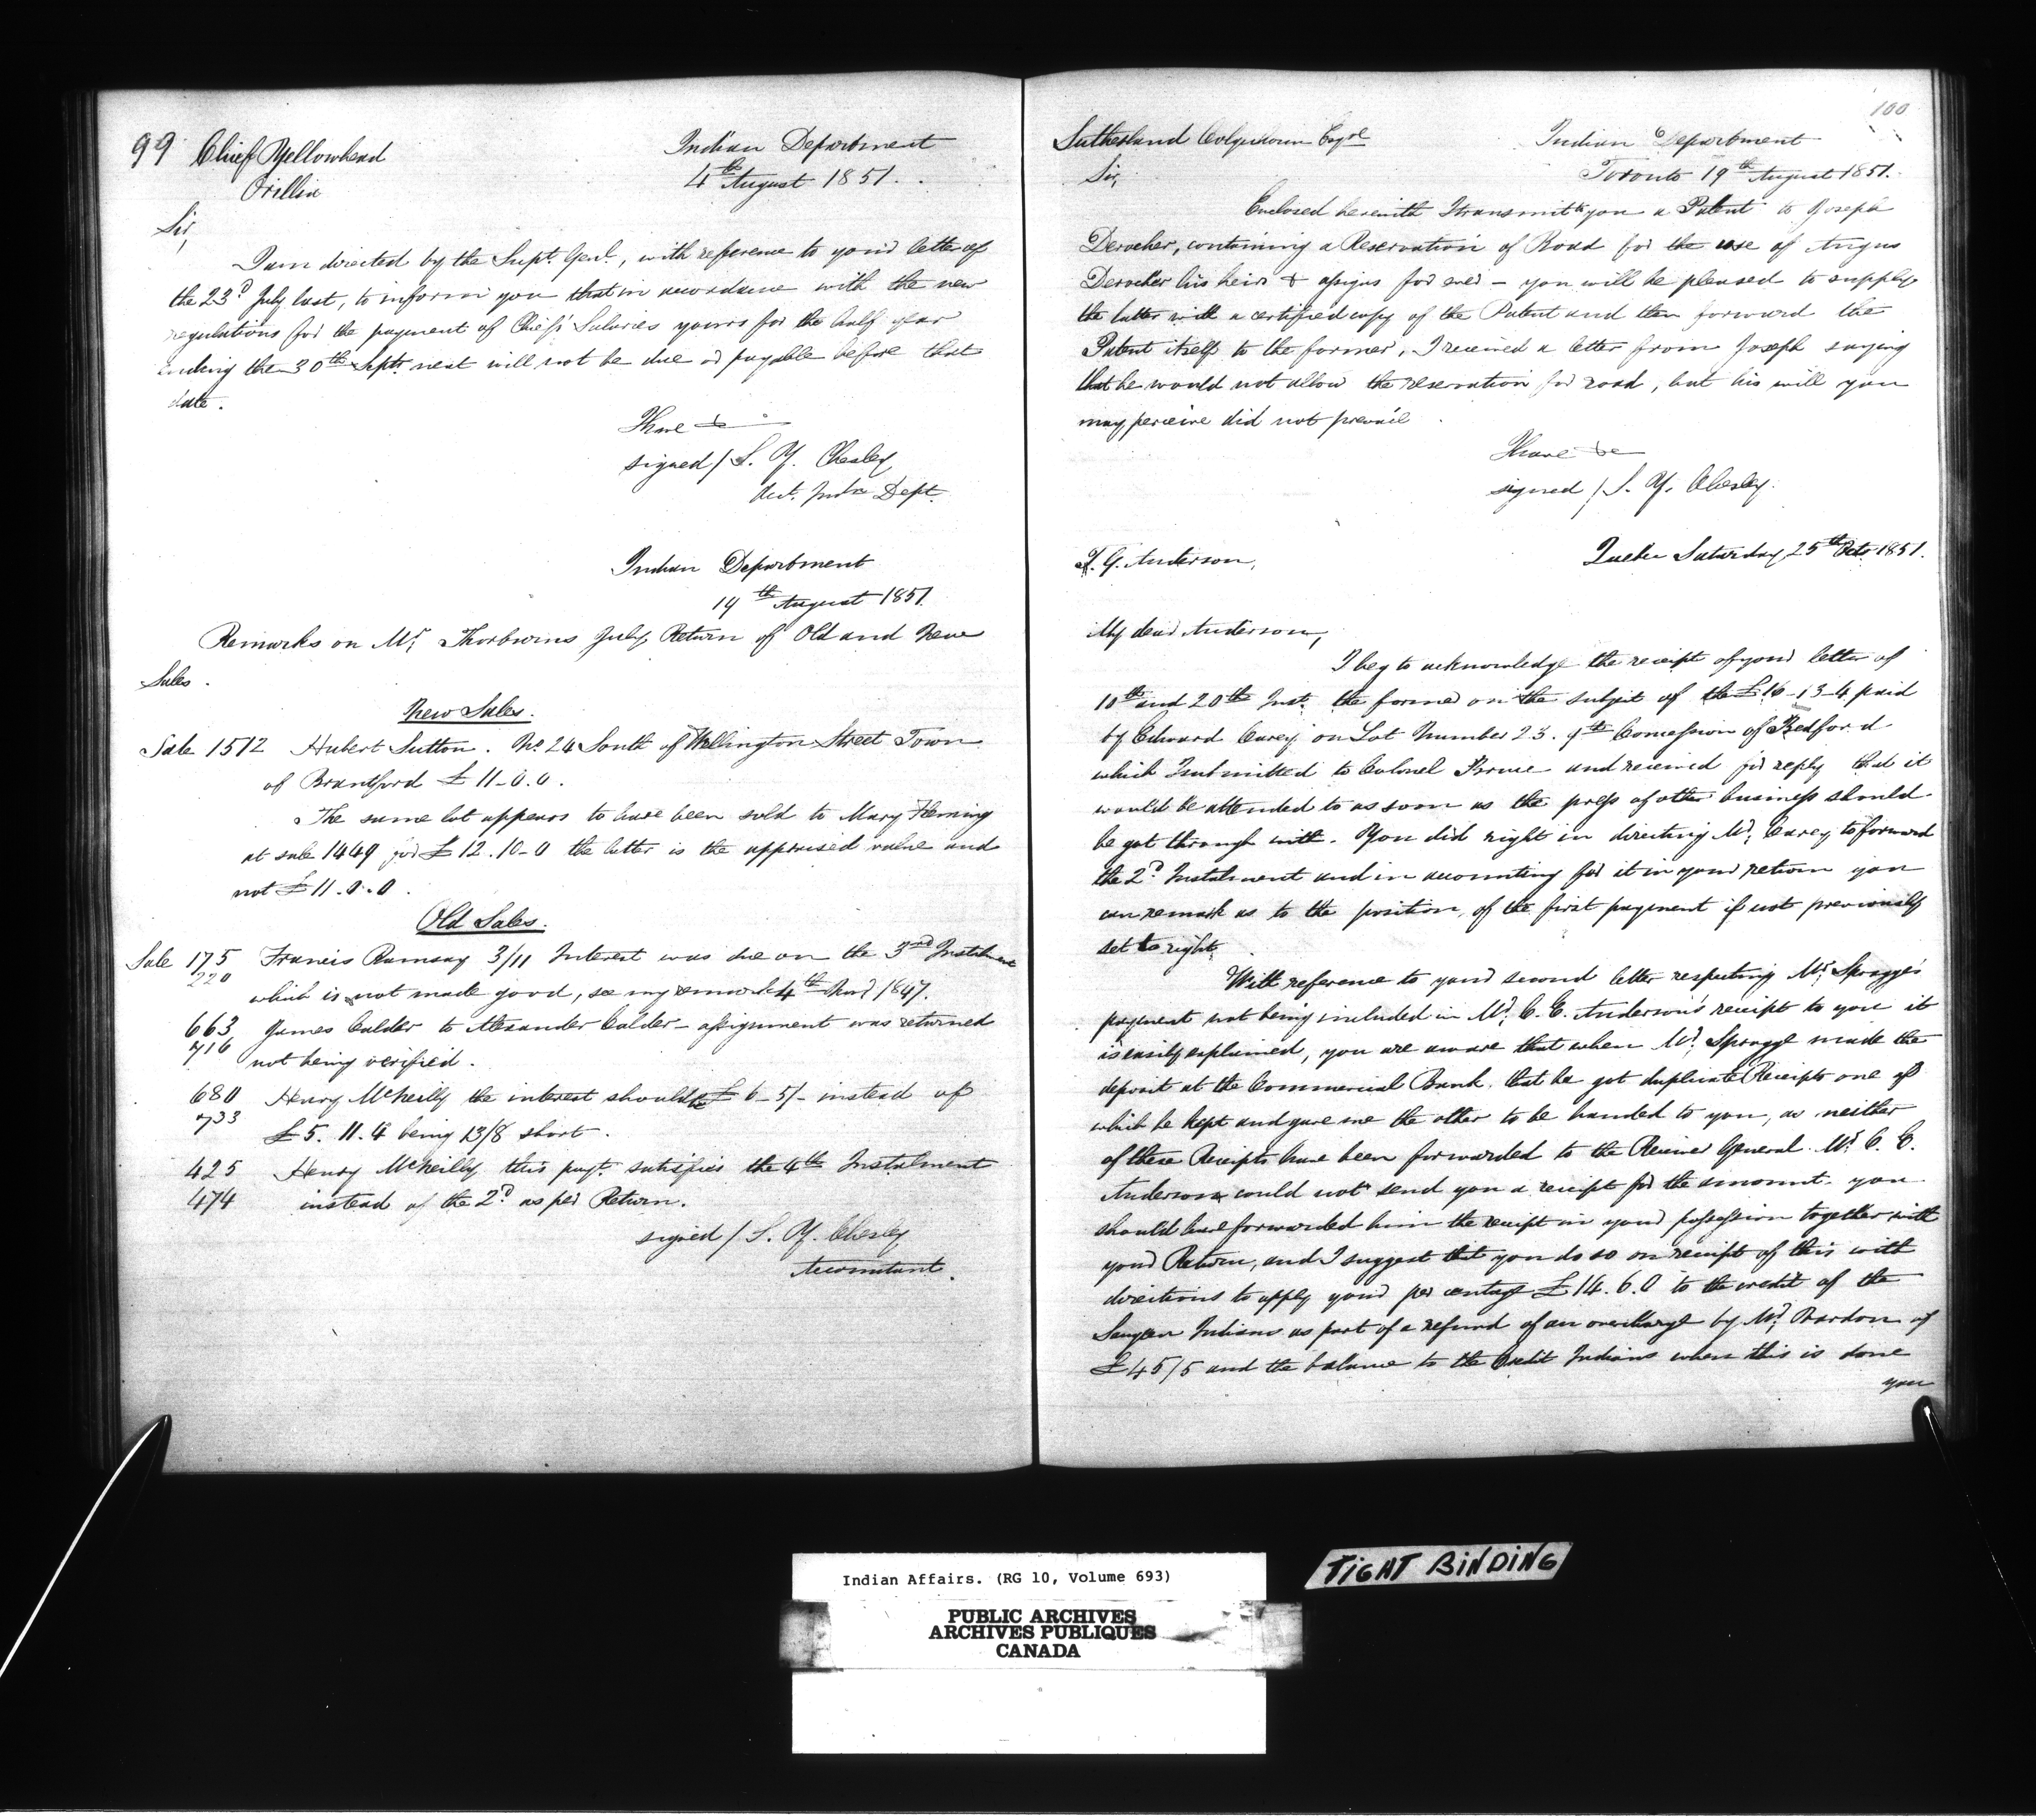 99 Chief Yellowhead
Orillia
Indian Department
4th August 1851.
Sir,
I am directed by the Supt. Genl., with reference to your letter of
the 23d July last, to inform you that in accordance with the new
regulations for the payment of Chiefs' Salaries yours for the half year
ending the 30th Septr next will not be due or payable before that
date.
I have &c
signed / S. Y. Chesley
Indn Dept.
Indian Department
19th August 1851.
Remarks on Mr Thorburns July Return of Old and New
Sales.
New Sales.
Sale 1512 Hubert Sutton. No 24 South of Wellington Street Town
of Brantford £11-0.0.
The same lot appears to have been sold to Mary Fleming
at sale 1449 for £12.10-0 the latter is the appraised value and
not £11.0.0.
Old Sales.
Sale 175 Francis Ramsay 3/11 Interest was due on the 3rd Instalment
220 which is not made good, see my remark 4th Novr 1847.
663 James Calder to Alexander Calder - assignment was returned
716 not being verified.
680 Henry McNeilly the interest should be £6-5/- instead of
733 £5.11.4 being 13/8 short.
425 Henry McNeilly this payt. satisfies the 4th Instalment
474 instead of the 2d as per Return.
signed / S. Y. Chesley
Accountant.
100
Sutherland Colquhoun Esqre
Indian Department
Toronto 19th August 1851.
Sir,
Enclosed herewith I transmit to you a Patent to Joseph
Derocher, containing a Reservation of Road for the use of Angus
Derocher his heirs & assigns for ever - you will be pleased to supply
the latter with a certified copy of the Patent and then forward the
Patent itself to the former, I received a letter from Joseph saying
that he would not allow the reservation for road, but his will you
may perceive did not prevail
I have &c
signed / S. Y. Chesley.
T. G. Anderson,
Quebec Saturday 25th Octr 1851.
My dear Anderson,
I beg to acknowledge the receipt of your letter of
10th and 20th Inst. the former on the subject of the £16-13-4 paid
by Edward Carey on Lot Number 23. 9th Concession of Bedford
which I submitted to Colonel Bruce and received for reply that it
would be attended to as soon as the press of other business should
be got through with. You did right in directing Mr. Carey to forward
the 2d Instalment and in accounting for it in your return you
can remark as to the position of the first payment if not previously
set to right.
With reference to your second letter respecting Mr Spragge's
payment not being included in Mr. C. E. Anderson's receipt to you it
is easily explained, you are aware that when Mr. Spragge made the
deposit at the Commercial Bank that he got duplicate Receipts one of
which he kept and gave me the other to be handed to you, as neither
of these Receipts have been forwarded to the Receiver General Mr C. E.
Anderson could not send you a receipt for the amount. you
should have forwarded him the receipt in your possession together with
your Return, and I suggest that you do so on receipt of this with
directions to apply your per centage £14.6.0 to the credit of the
Saugeen Indians as part of a refund of an overcharge by Mr. of
£45/5 and the balance to the Credit Indians when this is done
you
Indian Affairs. (RG 10, Volume 693)
PUBLIC ARCHIVES
ARCHIVES PUBLIQUES
CANADA
TIGHT BINDING